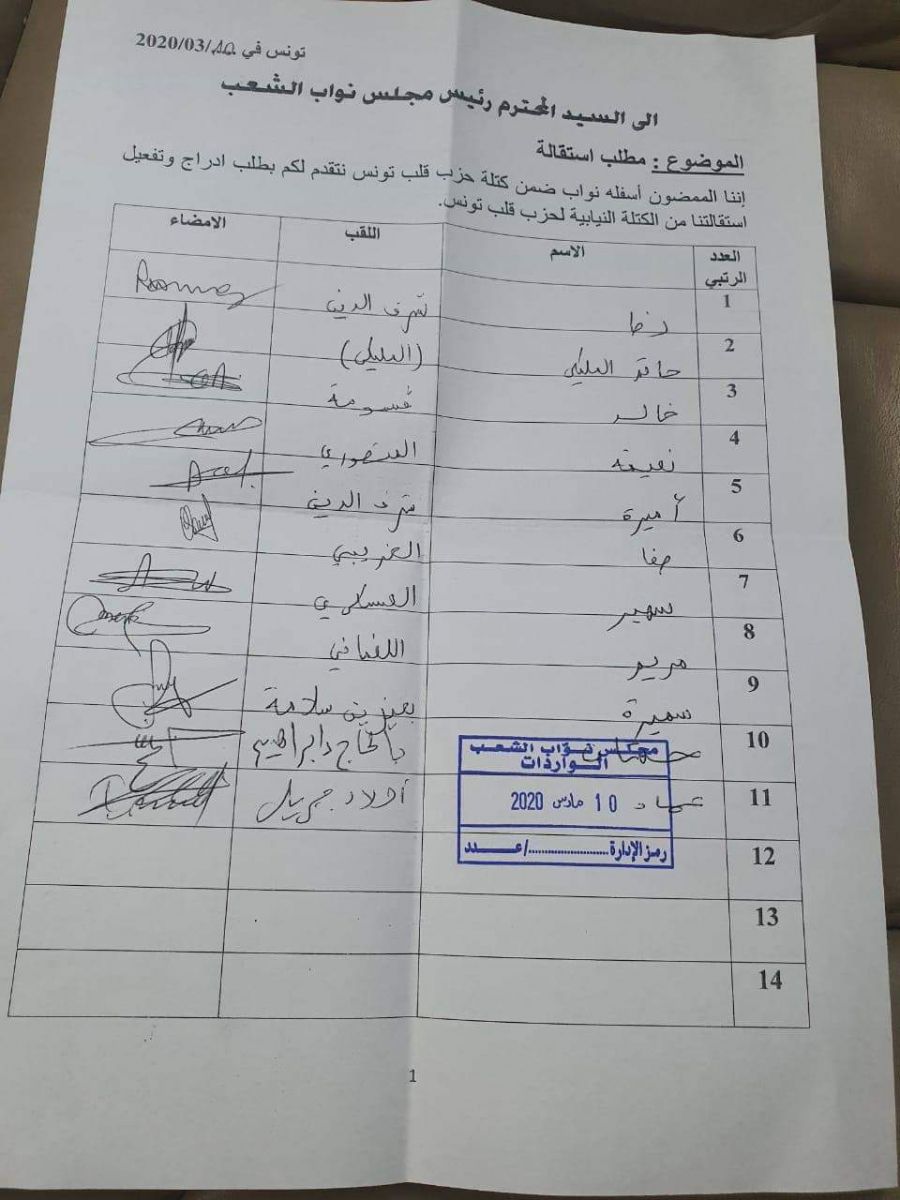 تونس في 2020/03/10
الى السيد المحترم رئيس مجلس نواب الشعب
الموضوع : مطلب استقالة
إننا الممضون أسفله نواب ضمن كتلة حزب قلب تونس نتقدم لكم بطلب ادراج وتفعيل
استقالتنا من الكتلة النيابية لحزب قلب تونس.
العدد الرتبي الاسم اللقب الامضاء
1 رضا شرف الدين
2 حاتم المليكي (المليكي)
3 خالد قسومة
4 نعيمة المنصوري
5 أميرة شرف الدين
6 صفا الغريبي
7 سهير العسكري
8 مريم اللغماني
9 سميرة بن سلامة
10 بالحاج براهيم
11 عماد أولاد جبريل
12
13
14
مجلس نواب الشعب
الواردات
10 مارس 2020
رمز الإدارة ........../عدد
1